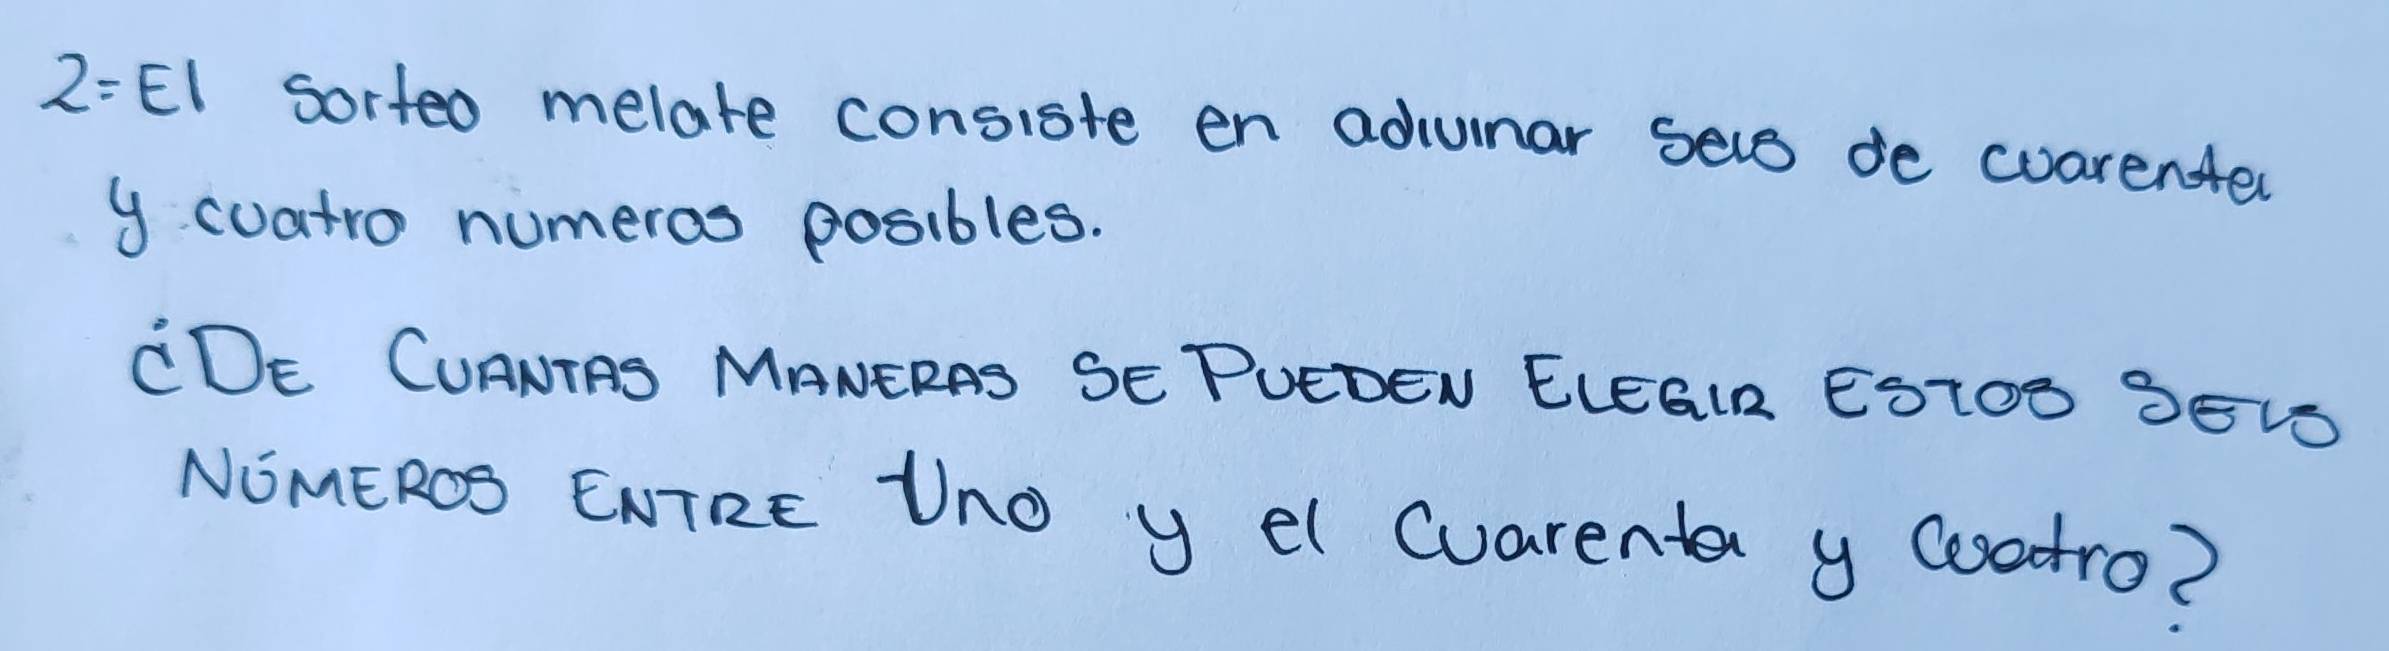 2=El sorteo melate consiste en adivinar seis de cuarenta
y cuatro numeros posibles.
¿DE CUANTAS MANERAS SE PUEDEN ELEGIR ESTOS SEIS
NÚMEROS ENTRE Uno y el Cuarenta y Cuatro?